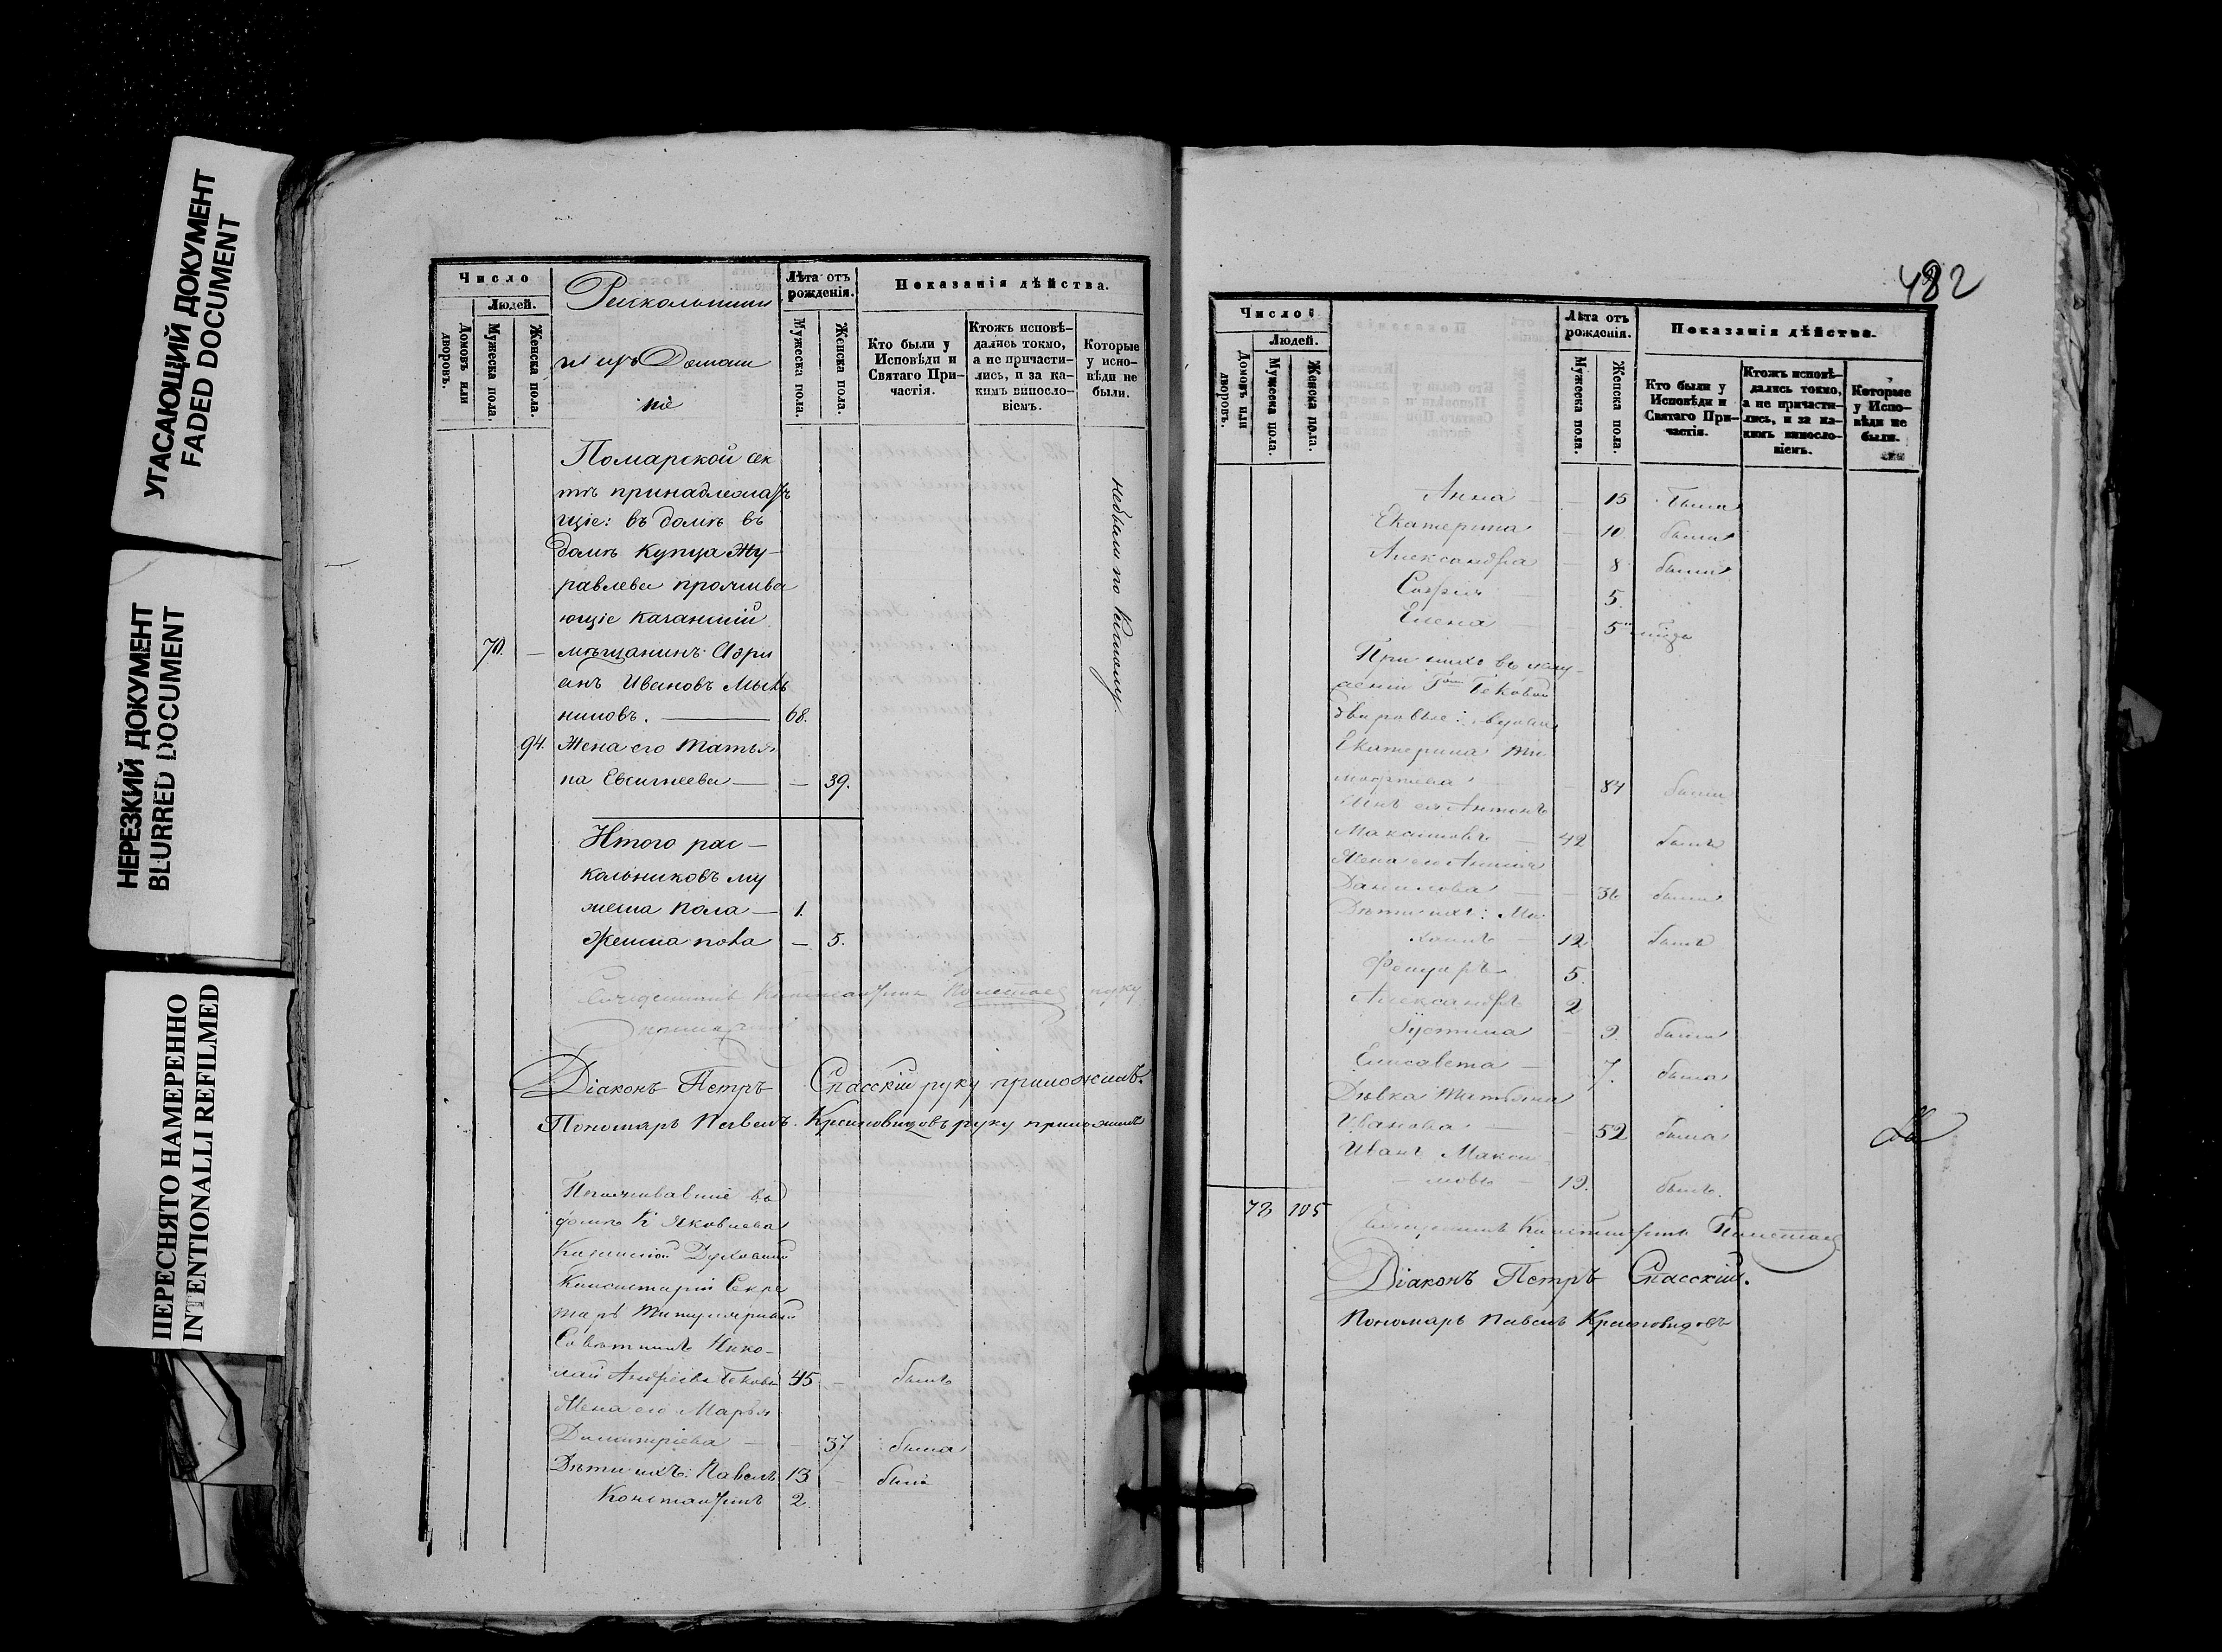 УГАСАЮЩИЙ ДОКУМЕНТ
FADED DOCUMENT
НЕРЕЗКИЙ ДОКУМЕНТ
BLURRED DOCUMENT
ПЕРЕСНЯТО НАМЕРЕННО
INTENTIONALLI REFILMED
Число
Людей.
Домовъ или дворовъ.
Мужеска пола.
Женска пола.
Раскольники
и ихъ Домаш
ніе
Лѣта отъ рожденія.
Мужеска пола.
Женска пола.
Показанія дѣйства.
Кто были у Исповѣди и Святаго Причастія.
Ктожъ исповѣдались токмо, а не причастились, и за какимъ винословіемъ.
Которые у исповѣди не были.
Помарской сек
тѣ принадлежа
щіе: въ домѣ въ
домѣ купца Жу-
равлева прожива
ющіе казанскій
70. — мѣщанинъ Адри
анъ Ивановъ
68.
94. Жена его Татья
на Евсигнеева — — 39.
небыли по расколу.
Итого рас—
кольниковъ му
жеска пола — 1.
Женска пола — 5.
Священникъ Константинъ руку
Діаконъ Петръ Спасскій руку приложилъ.
Пономарь Павелъ Красновидовъ руку приложилъ
Проживавшіе въ
домѣ К Яковлева
Казанской Духовной
Консисторіи Секре
тарь Титулярный
Совѣтникъ Нико-
лай Андреевъ 45 — былъ
Жена его Марья
Димитріева — — 37 была
Дѣти ихъ: Павелъ 13 — былъ
Константинъ 2.
482
Число
Людей.
Домовъ или дворовъ.
Мужеска пола.
Женска пола.
Лѣта отъ рожденія.
Мужеска пола.
Женска пола.
Показанія дѣйства.
Кто были у Исповѣди и Святаго Причастія.
Ктожъ исповѣдались токмо, а не причастились, и за какимъ винословіемъ.
Которые у Исповѣди не были.
Анна — — 15 была
Екатерина — 10 была
Александра — 8 была
Софія — 5.
Елена — 5
При нихъ въ услу-
женіи
дворовые: вдова
Екатерина Ти
мофеева — 84 была
Сынъ ея Антонъ
Максимовъ — 42 былъ
Жена его
Данилова — — 36 была
Дѣти ихъ: Ми
хаилъ — 12 былъ
5.
Александръ 2
Іустина — 9. была
Елисавета — 7. была
Дѣвка Татьяна
Иванова — — 52 была
Иванъ Макси
мовъ — 19. былъ.
78 105
Священникъ Константинъ
Діаконъ Петръ Спасскій.
Пономарь Павелъ Красновидовъ